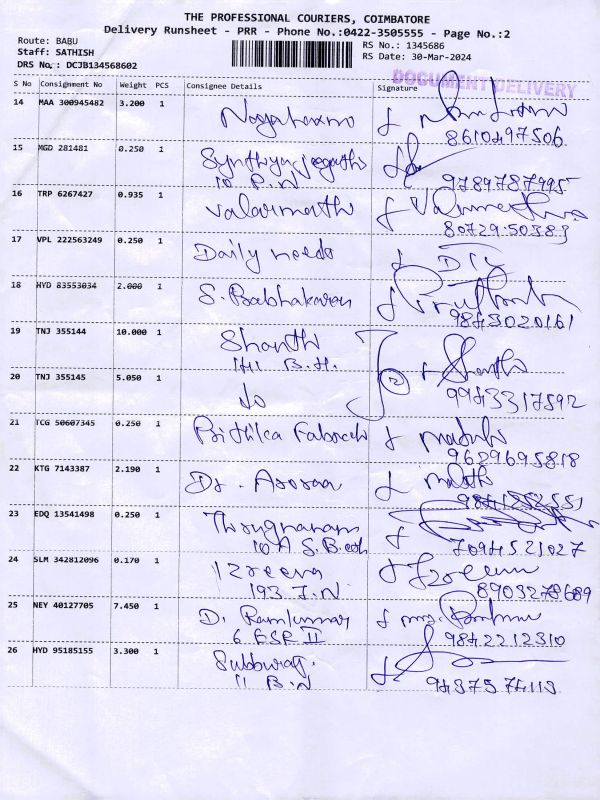 THE PROFESSIONAL COURIERS, COIMBATORE
Delivery Runsheet - PRR - Phone No.:0422-3505555 - Page No.:2
Route: BABU
Staff: SATHISH
DRS No. : DCJB134568602
RS No.: 1345686
RS Date: 30-Mar-2024
DOCUMENT DELIVERY
S No Consignment No Weight PCS Consignee Details Signature
14 MAA 300945482 3.200 1
8610497506
15 MGD 281481 0.250 1
10 P.N 9789787995
16 TRP 6267427 0.935 1 Valarmathi
80729 50383
17 VPL 222563249 0.250 1 Daily needs
18 HYD 83553034 2.000 1 S. Babhakaran
9843020161
19 TNJ 355144 10.000 1 Shanthi
141 B.H.
20 TNJ 355145 5.050 1 do 2 Shanthi
9943317592
21 TCG 50607345 0.250 1
9629695818
22 KTG 7143387 2.190 1 Dr.
9841252551
23 EDQ 13541498 0.250 1
7094521027
24 SLM 342812096 0.170 1
193 J.N 8903278689
25 NEY 40127705 7.450 1 D. Ramkumar
6 ESR II 9842212310
26 HYD 95185155 3.300 1 Subburaj.
11 B.N